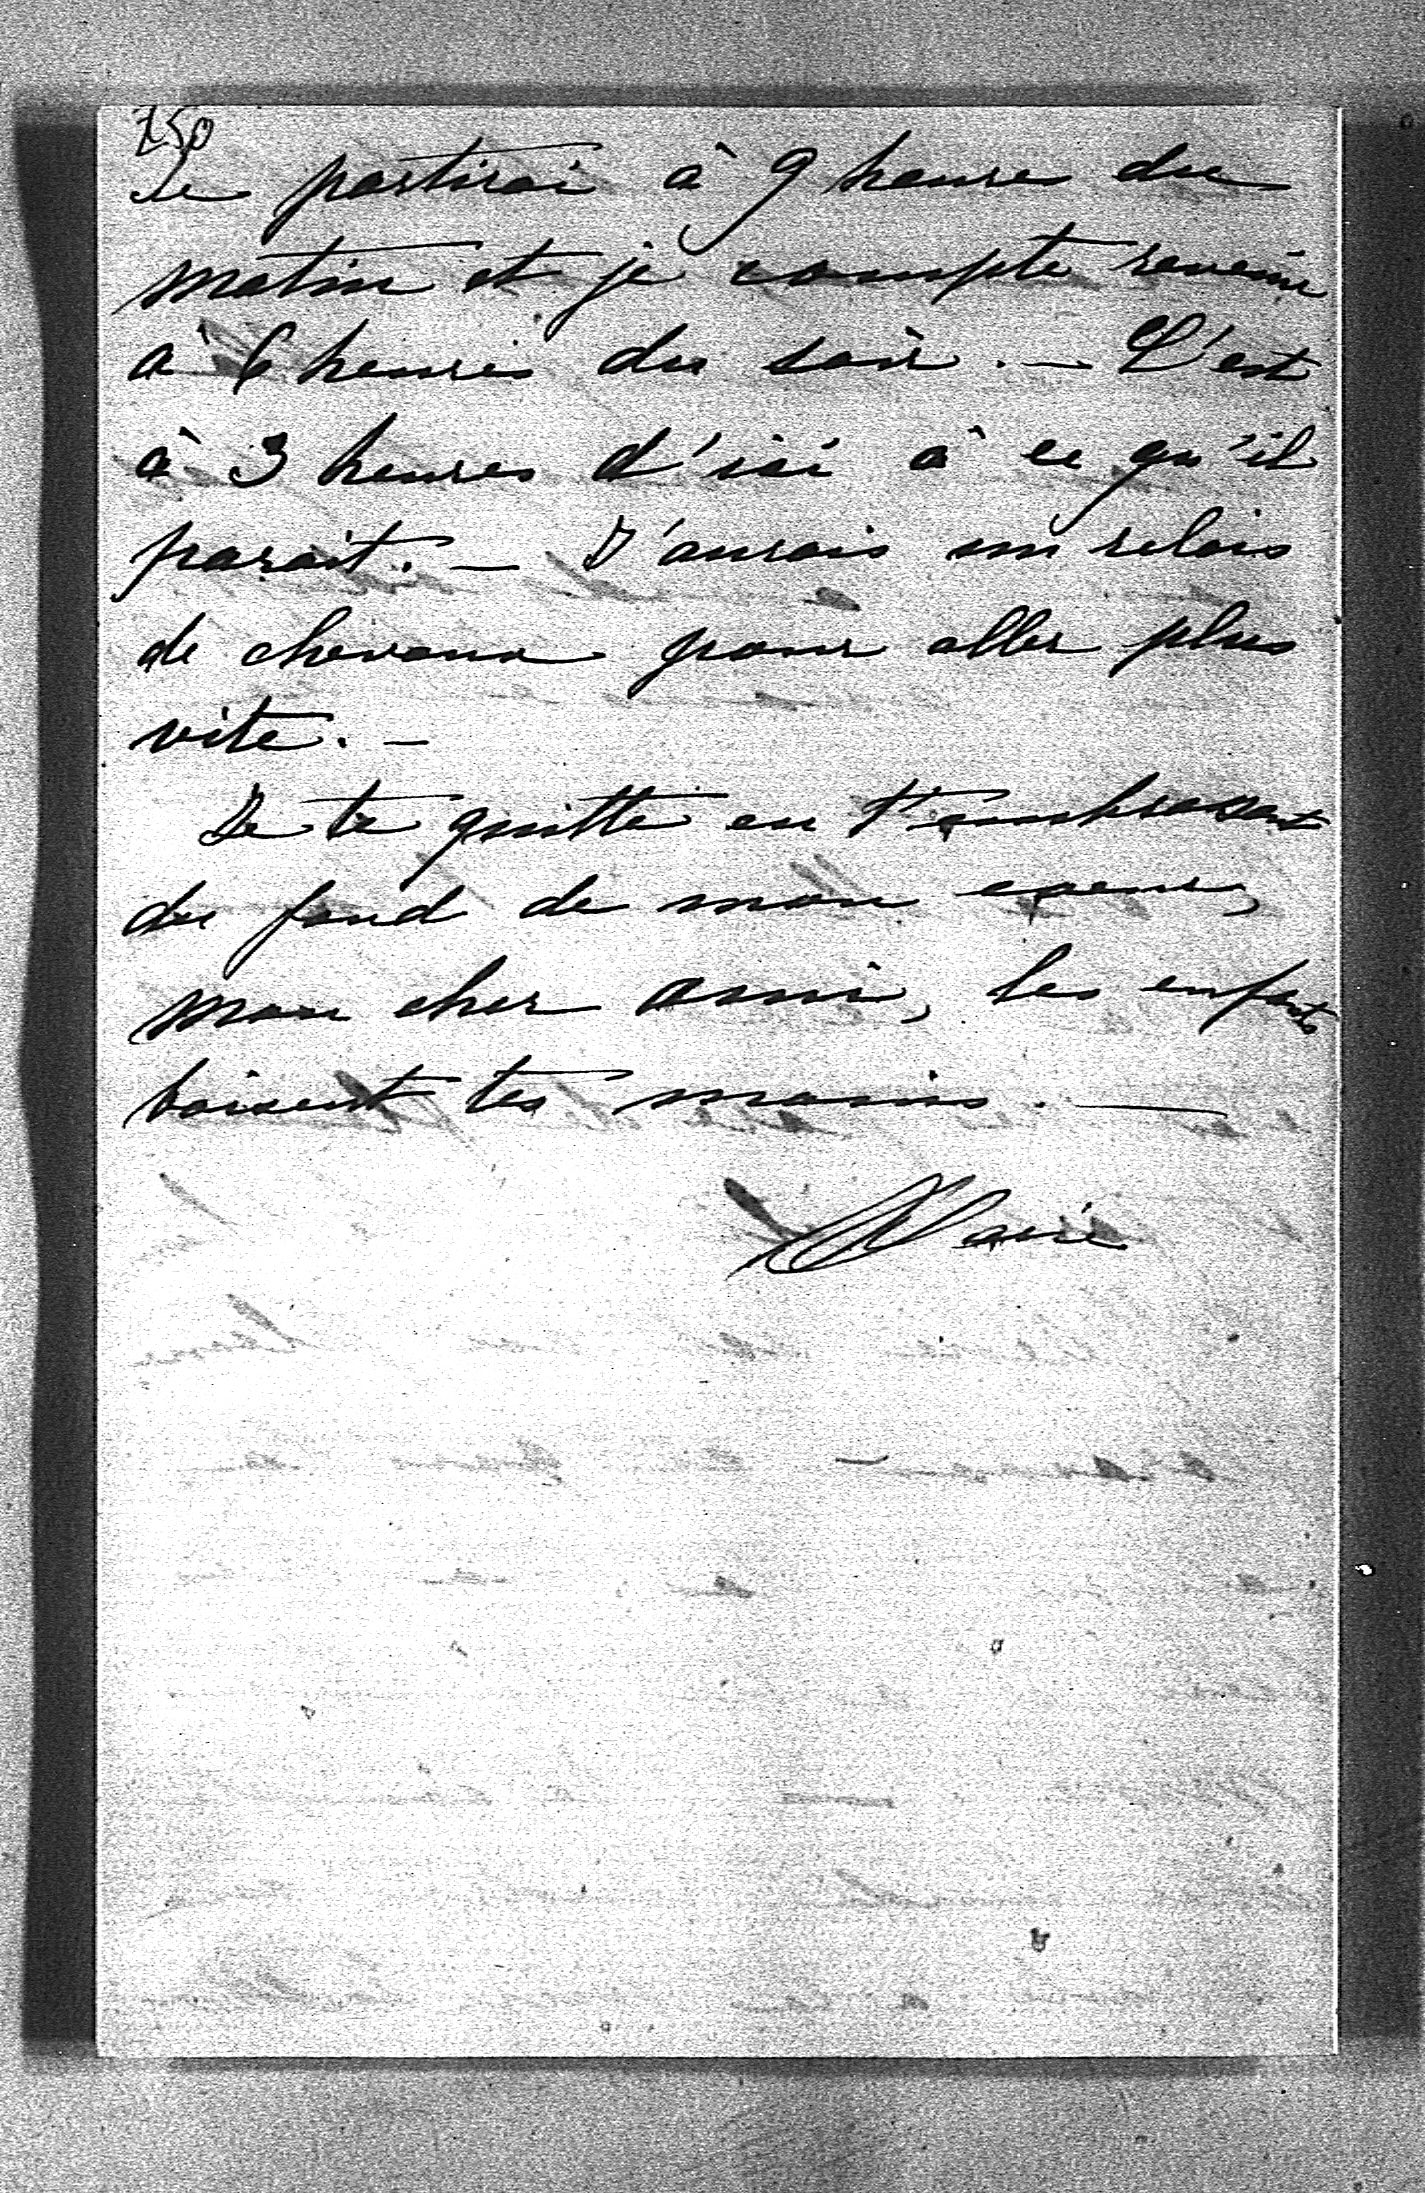 250
Je partirai à 9 heures du
matin et je compte revenir
à 6 heures du soir. — C'est
à 3 heures d'ici à ce qu'il
parait. — J'aurais un relais
de chevaux pour aller plus
vite. —
Je te quitte en t'embrassant
du fond de mon coeur,
mon cher ami, les enfants
baisent tes mains. —
Marie